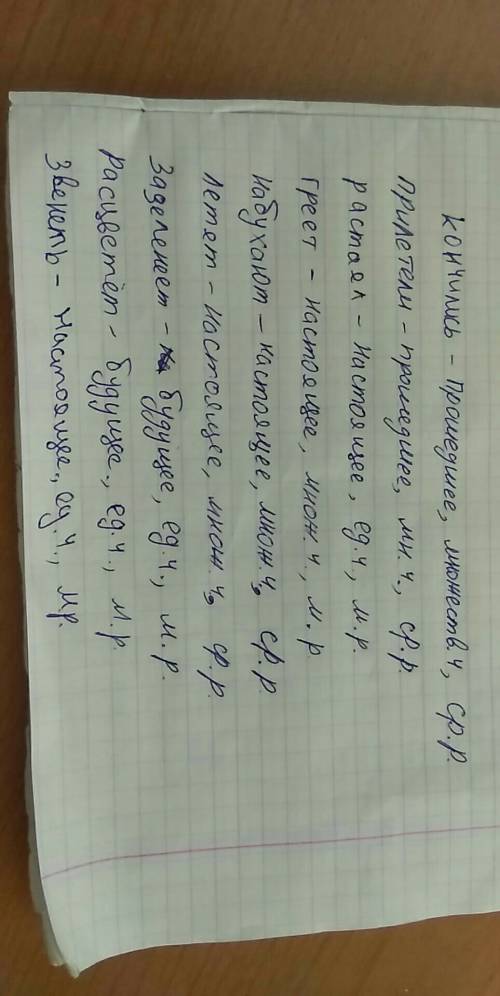 кончились – Прошедшее, множеств ч, ср.р.
прилетели – прошедшее, мн.ч., ср.р.
растаял – настоящее, ед.ч., м.р.
греет – настоящее, множ.ч., м.р
набухают – настоящее, множ.ч, ср.р
летят – настоящее, множ.ч, ср.р.
Зазеленеет – будущее, ед.ч., м.р.
расцветёт – будущее, ед.ч., м.р.
Звенеть – настоящее, ед.ч., м.р.